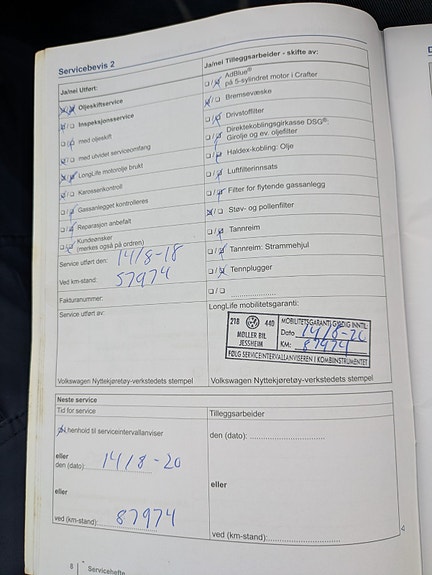 Servicebevis 2
Ja/nei Utført:
Oljeskiftservice
Inspeksjonsservice
med oljeskift
med utvidet serviceomfang
LongLife motorolje brukt
Karosserikontroll
Gassanlegget kontrolleres
Reparasjon anbefalt
Kundeønsker
(merkes også på ordren)
Service utført den: 14/8-18
Ved km-stand: 57974
Fakturanummer:
Service utført av:
Volkswagen Nyttekjøretøy-verkstedets stempel
Ja/nei Tilleggsarbeider - skifte av:
AdBlue®
på 5-sylindret motor i Crafter
Bremsevæske
Drivstoffilter
Direktekoblingsgirkasse DSG®:
Girolje og ev. oljefilter
Haldex-kobling: Olje
Luftfilterinnsats
Filter for flytende gassanlegg
Støv- og pollenfilter
Tannreim
Tannreim: Strammehjul
Tennplugger
LongLife mobilitetsgaranti:
218 440
MØLLER BIL
JESSHEIM
MOBILITETSGARANTI GYLDIG INNTIL:
Dato 14/8-20
KM: 87974
FØLG SERVICEINTERVALLANVISEREN I KOMBIINSTRUMENTET
Volkswagen Nyttekjøretøy-verkstedets stempel
Neste service
Tid for service
I henhold til serviceintervallanviser
eller
den (dato): 14/8-20
eller
ved (km-stand): 87974
Tilleggsarbeider:
den (dato):
eller
ved (km-stand):
8 Servicehefte